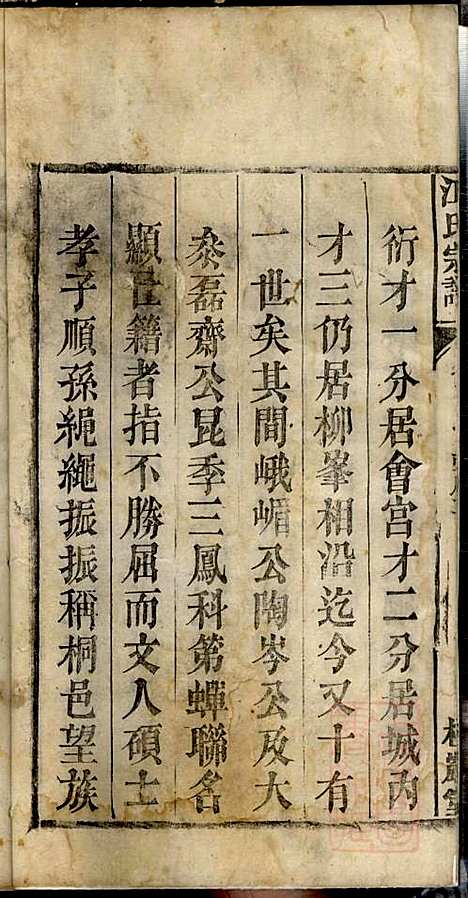 江氏宗譜
衍才一分居會宫才二分居城内
才三仍居柳峯相沿迄今又十有
一世矣其間峨嵋公陶岑公及大
泰磊齋公昆季三鳳科第蟬聯名
顯仕籍者指不勝屈而文人碩士
孝子順孫繩繩振振稱桐邑望族